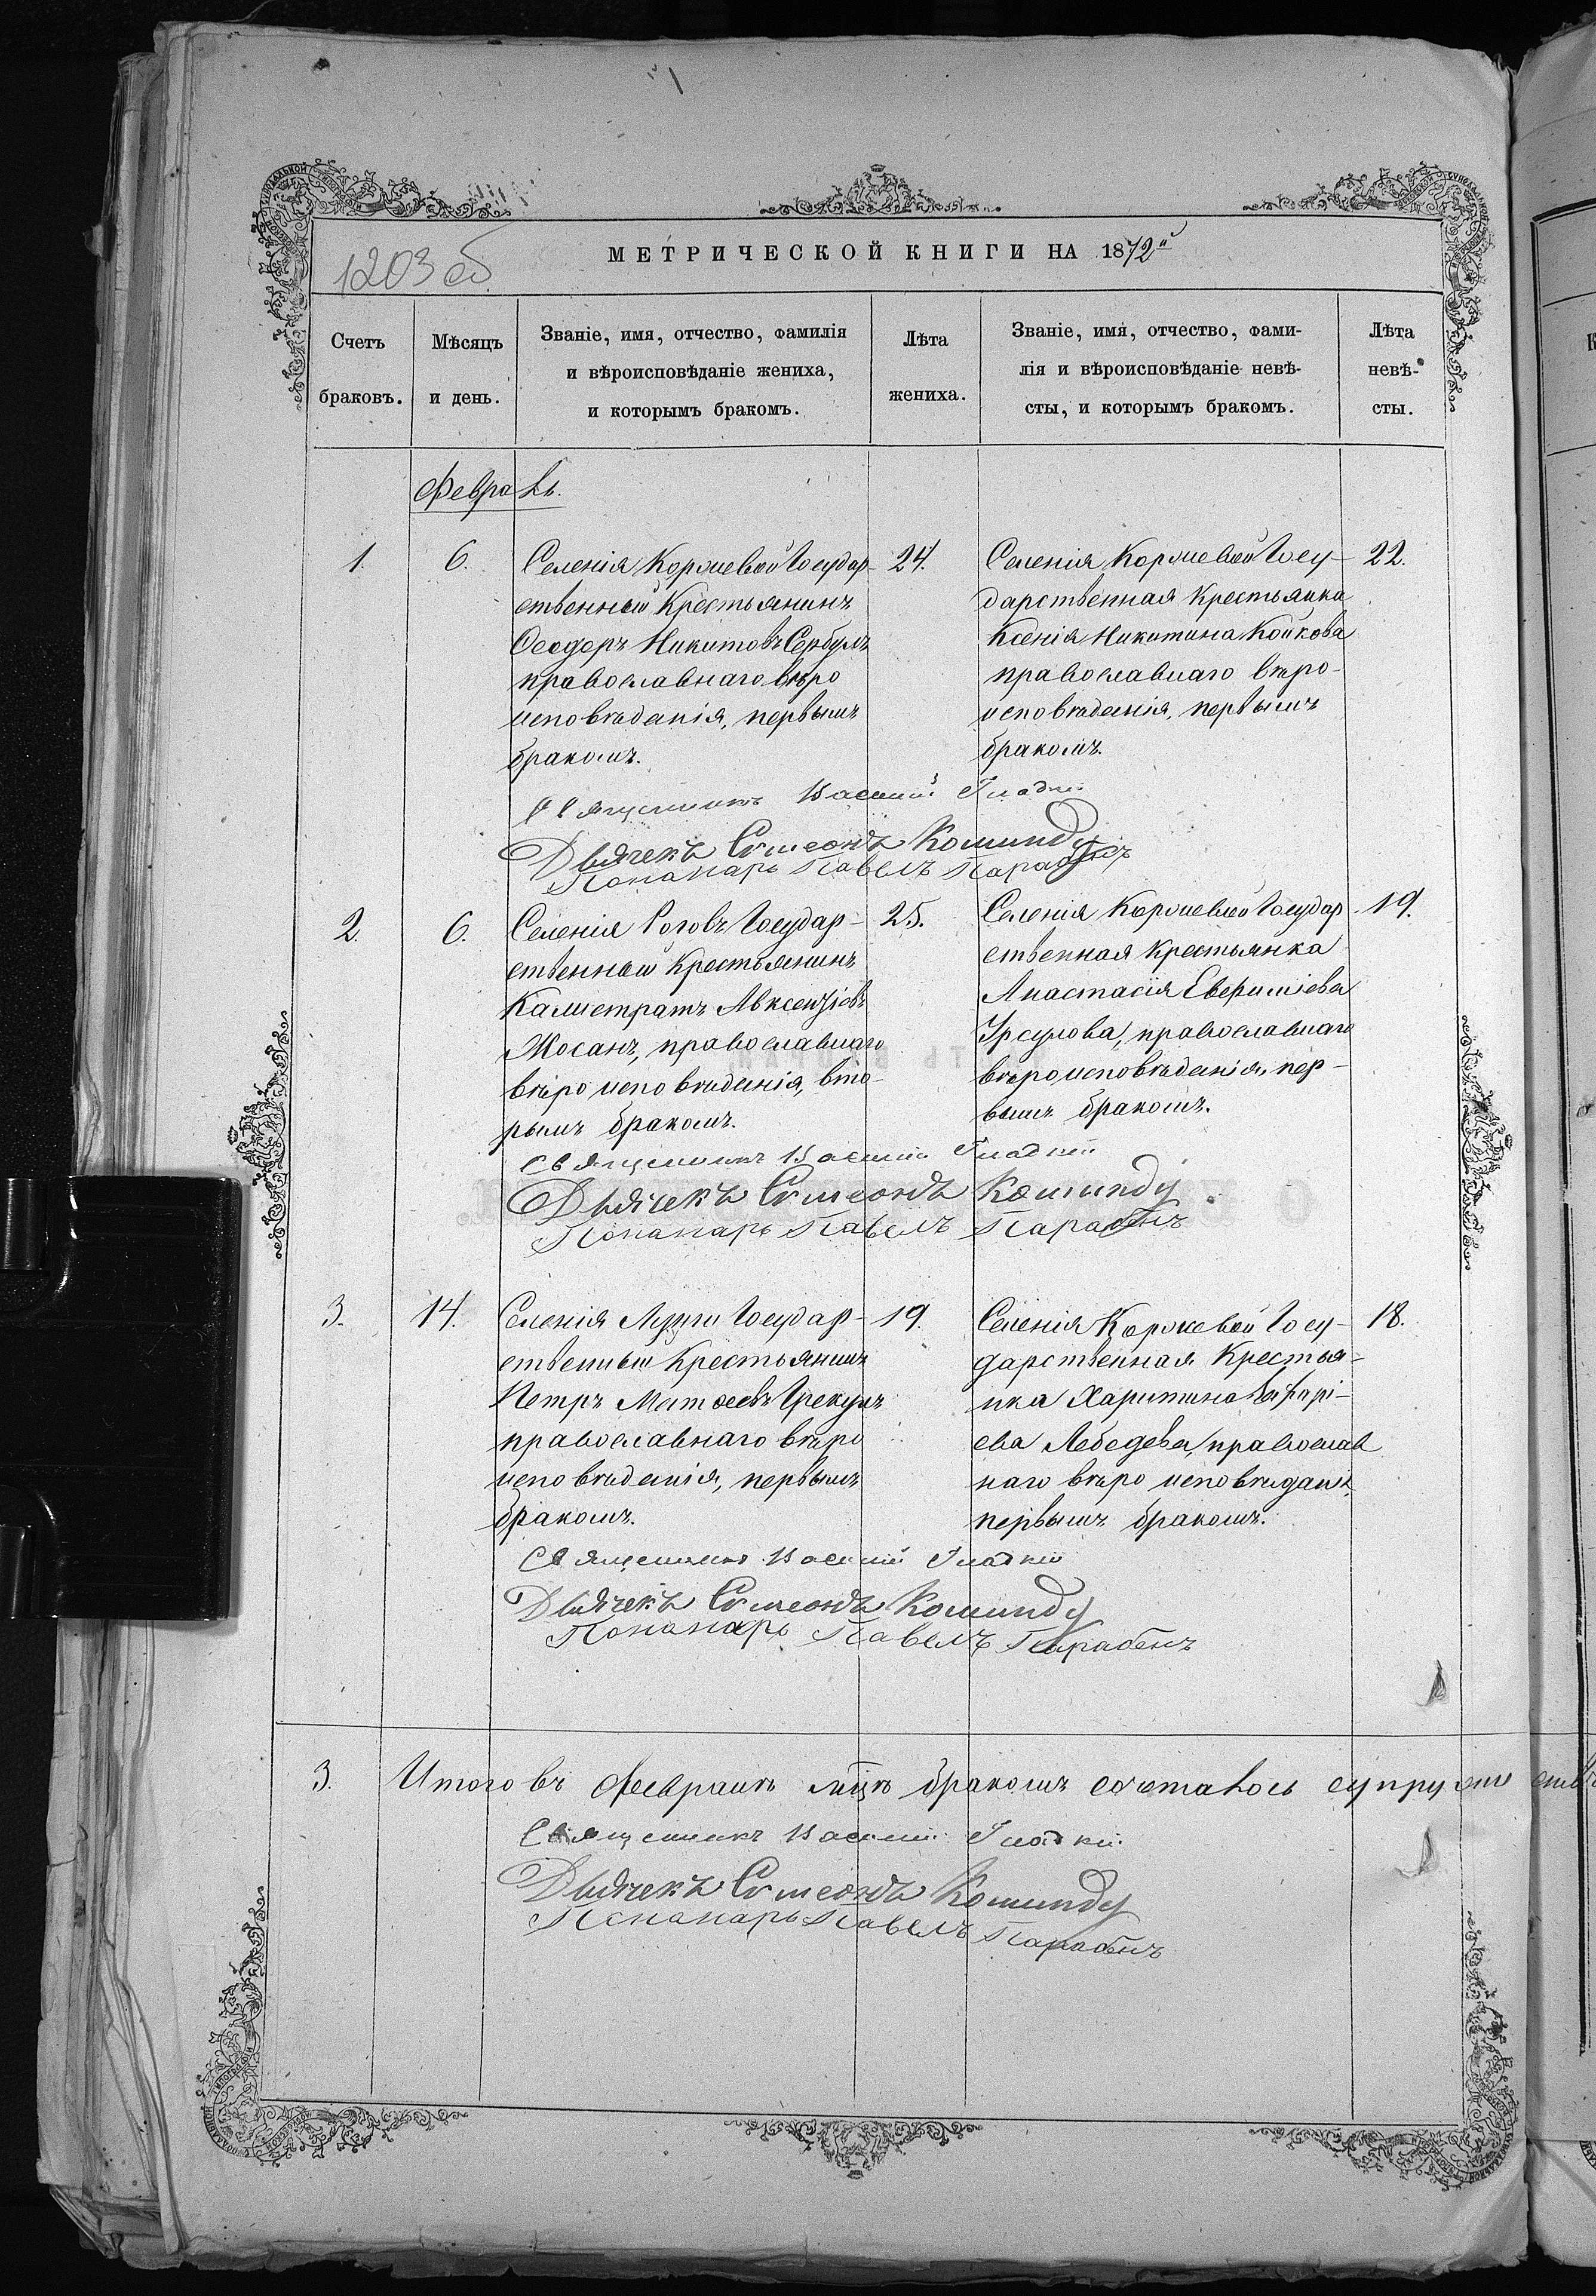 1203 об.
МЕТРИЧЕСКОЙ КНИГИ НА 1872й
Счетъ браковъ.
Мѣсяцъ и день.
Званіе, имя, отчество, фамилія
и вѣроисповѣданіе жениха,
и которымъ бракомъ.
Лѣта жениха.
Званіе, имя, отчество, фами-
лія и вѣроисповѣданіе невѣ-
сты, и которымъ бракомъ.
Лѣта невѣ-
сты.
Февраль.
1.
6.
Селенія Коржевой Государ-
ственный Крестьянинъ
Ѳеодоръ Никитовъ Сербулъ
православнаго вѣро
исповѣданія, первымъ
бракомъ.
24.
Селенія Коржевой Госу-
дарственная Крестьянка
Ксенія Никитина Койкова
православнаго вѣро-
исповѣданія, первымъ
бракомъ.
22.
Священникъ Василій Гладкій
Дьячекъ Симеонъ Коминду
Пономарь Павелъ
2.
6.
Селенія Роговъ Государ-
ственный Крестьянинъ
Калистратъ Авксентіевъ
Мосанъ, православнаго
вѣроисповѣданія, вто-
рымъ бракомъ.
25.
Селенія Коржевой Государ
ственная Крестьянка
Анастасія
Урсулова, православнаго
вѣроисповѣданія, пер-
вымъ бракомъ.
19.
Священникъ Василій Гладкій
Дьячекъ Симеонъ Коминду
Пономарь Павелъ
3.
14.
Селенія Государ-
ственный Крестьянинъ
Петръ Матѳеевъ Грекулъ
православнаго вѣро
исповѣданія, первымъ
бракомъ.
19.
Селенія Коржевой Госу-
дарственная Крестья-
нка Харитина
ева Лебедева, православ
наго вѣроисповѣданія,
первымъ бракомъ.
18.
Священникъ Василій Гладкій
Дьячекъ Симеонъ Коминду
Пономарь Павелъ
3. Итого въ Февралѣ мцѣ бракомъ сочеталось супружествъ
Священникъ Василій Гладкій
Дьячекъ Симеонъ Коминду
Пономарь Павелъ